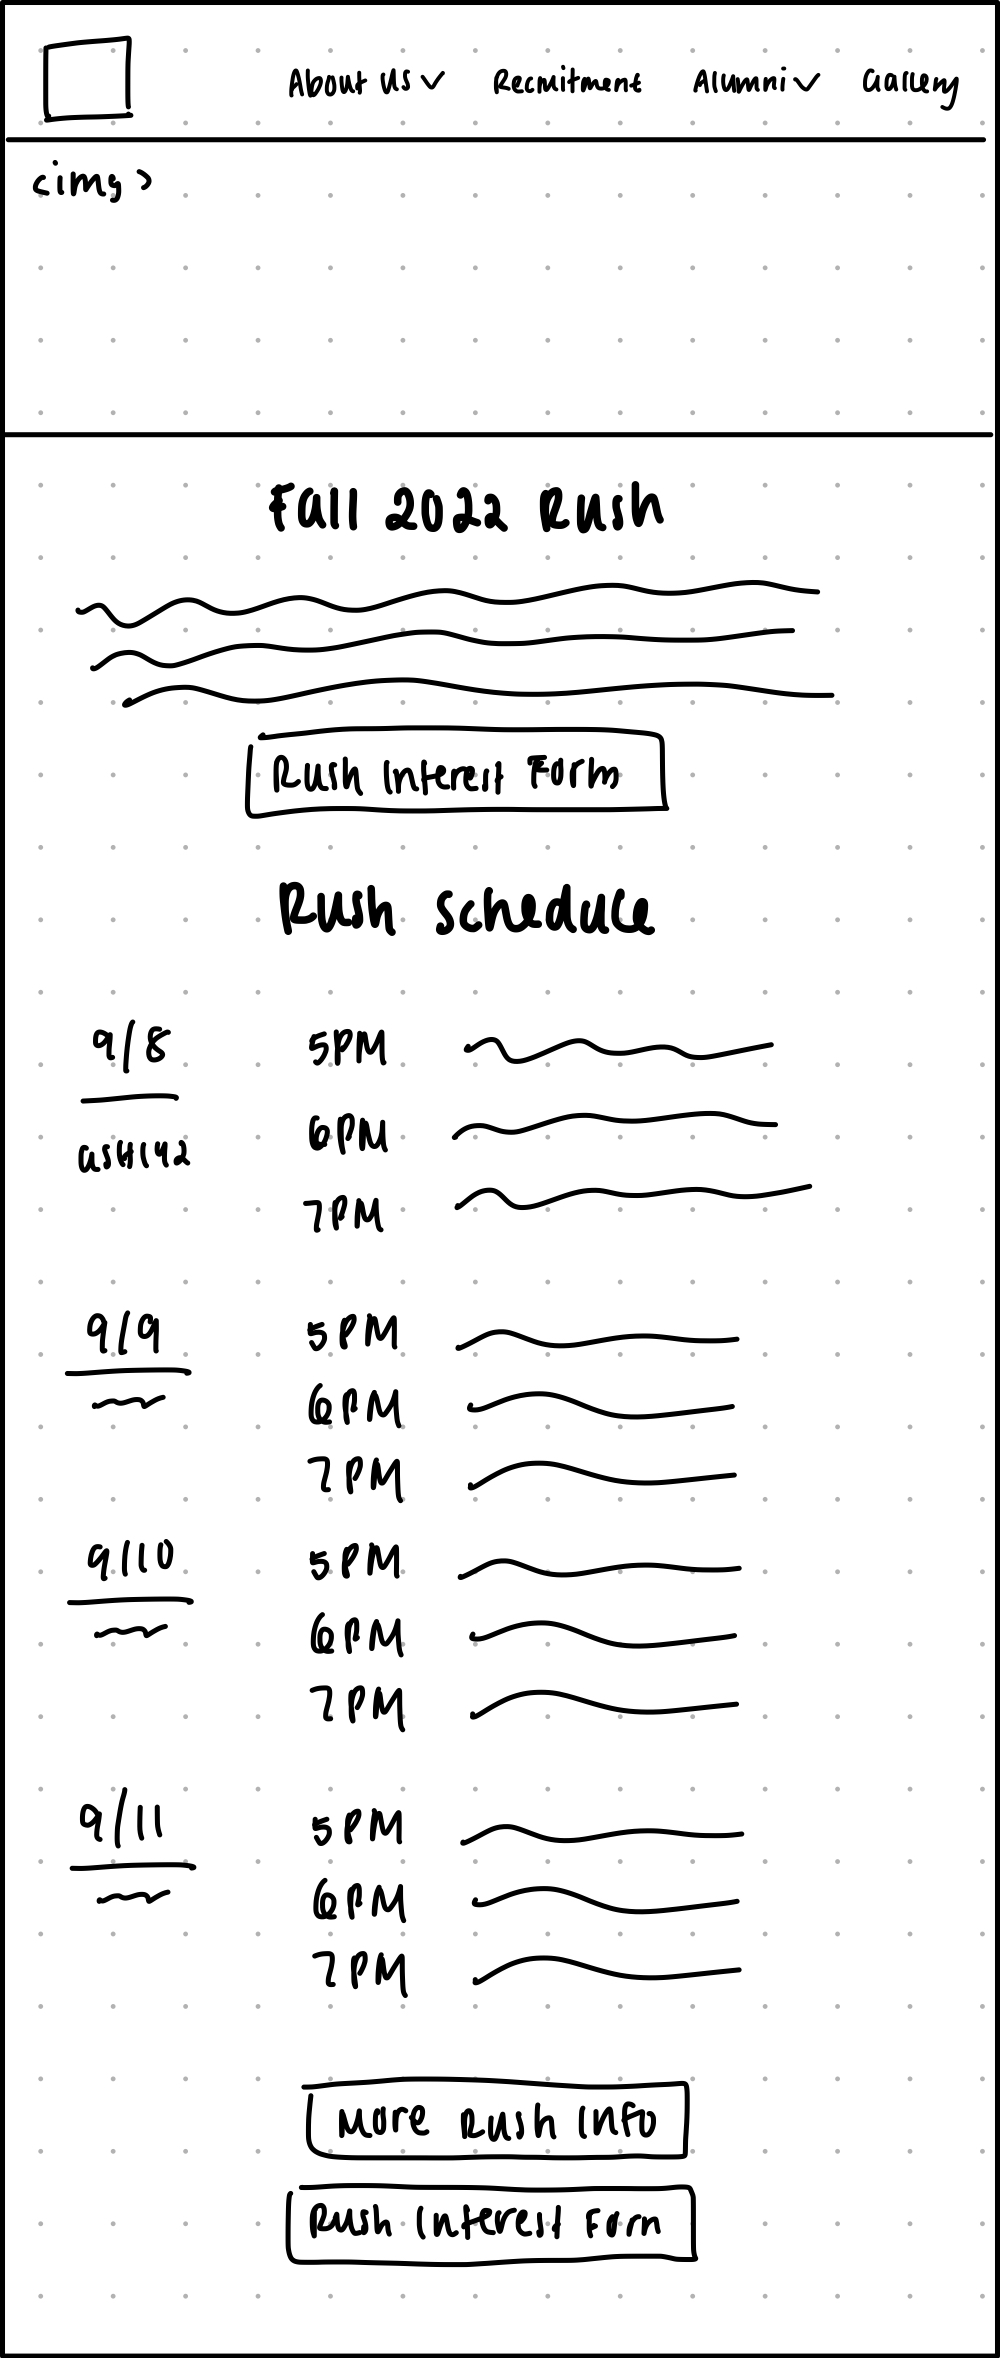 About Us Recruitment Alumni Gallery
<img>
Fall 2022 Rush
Rush Interest Form
Rush Schedule
9/8 5PM
6PM
ASH142
7PM
9/9 5PM
6PM
7PM
9/10 5PM
6PM
7PM
9/11 5PM
6PM
7PM
More Rush Info
Rush Interest Form